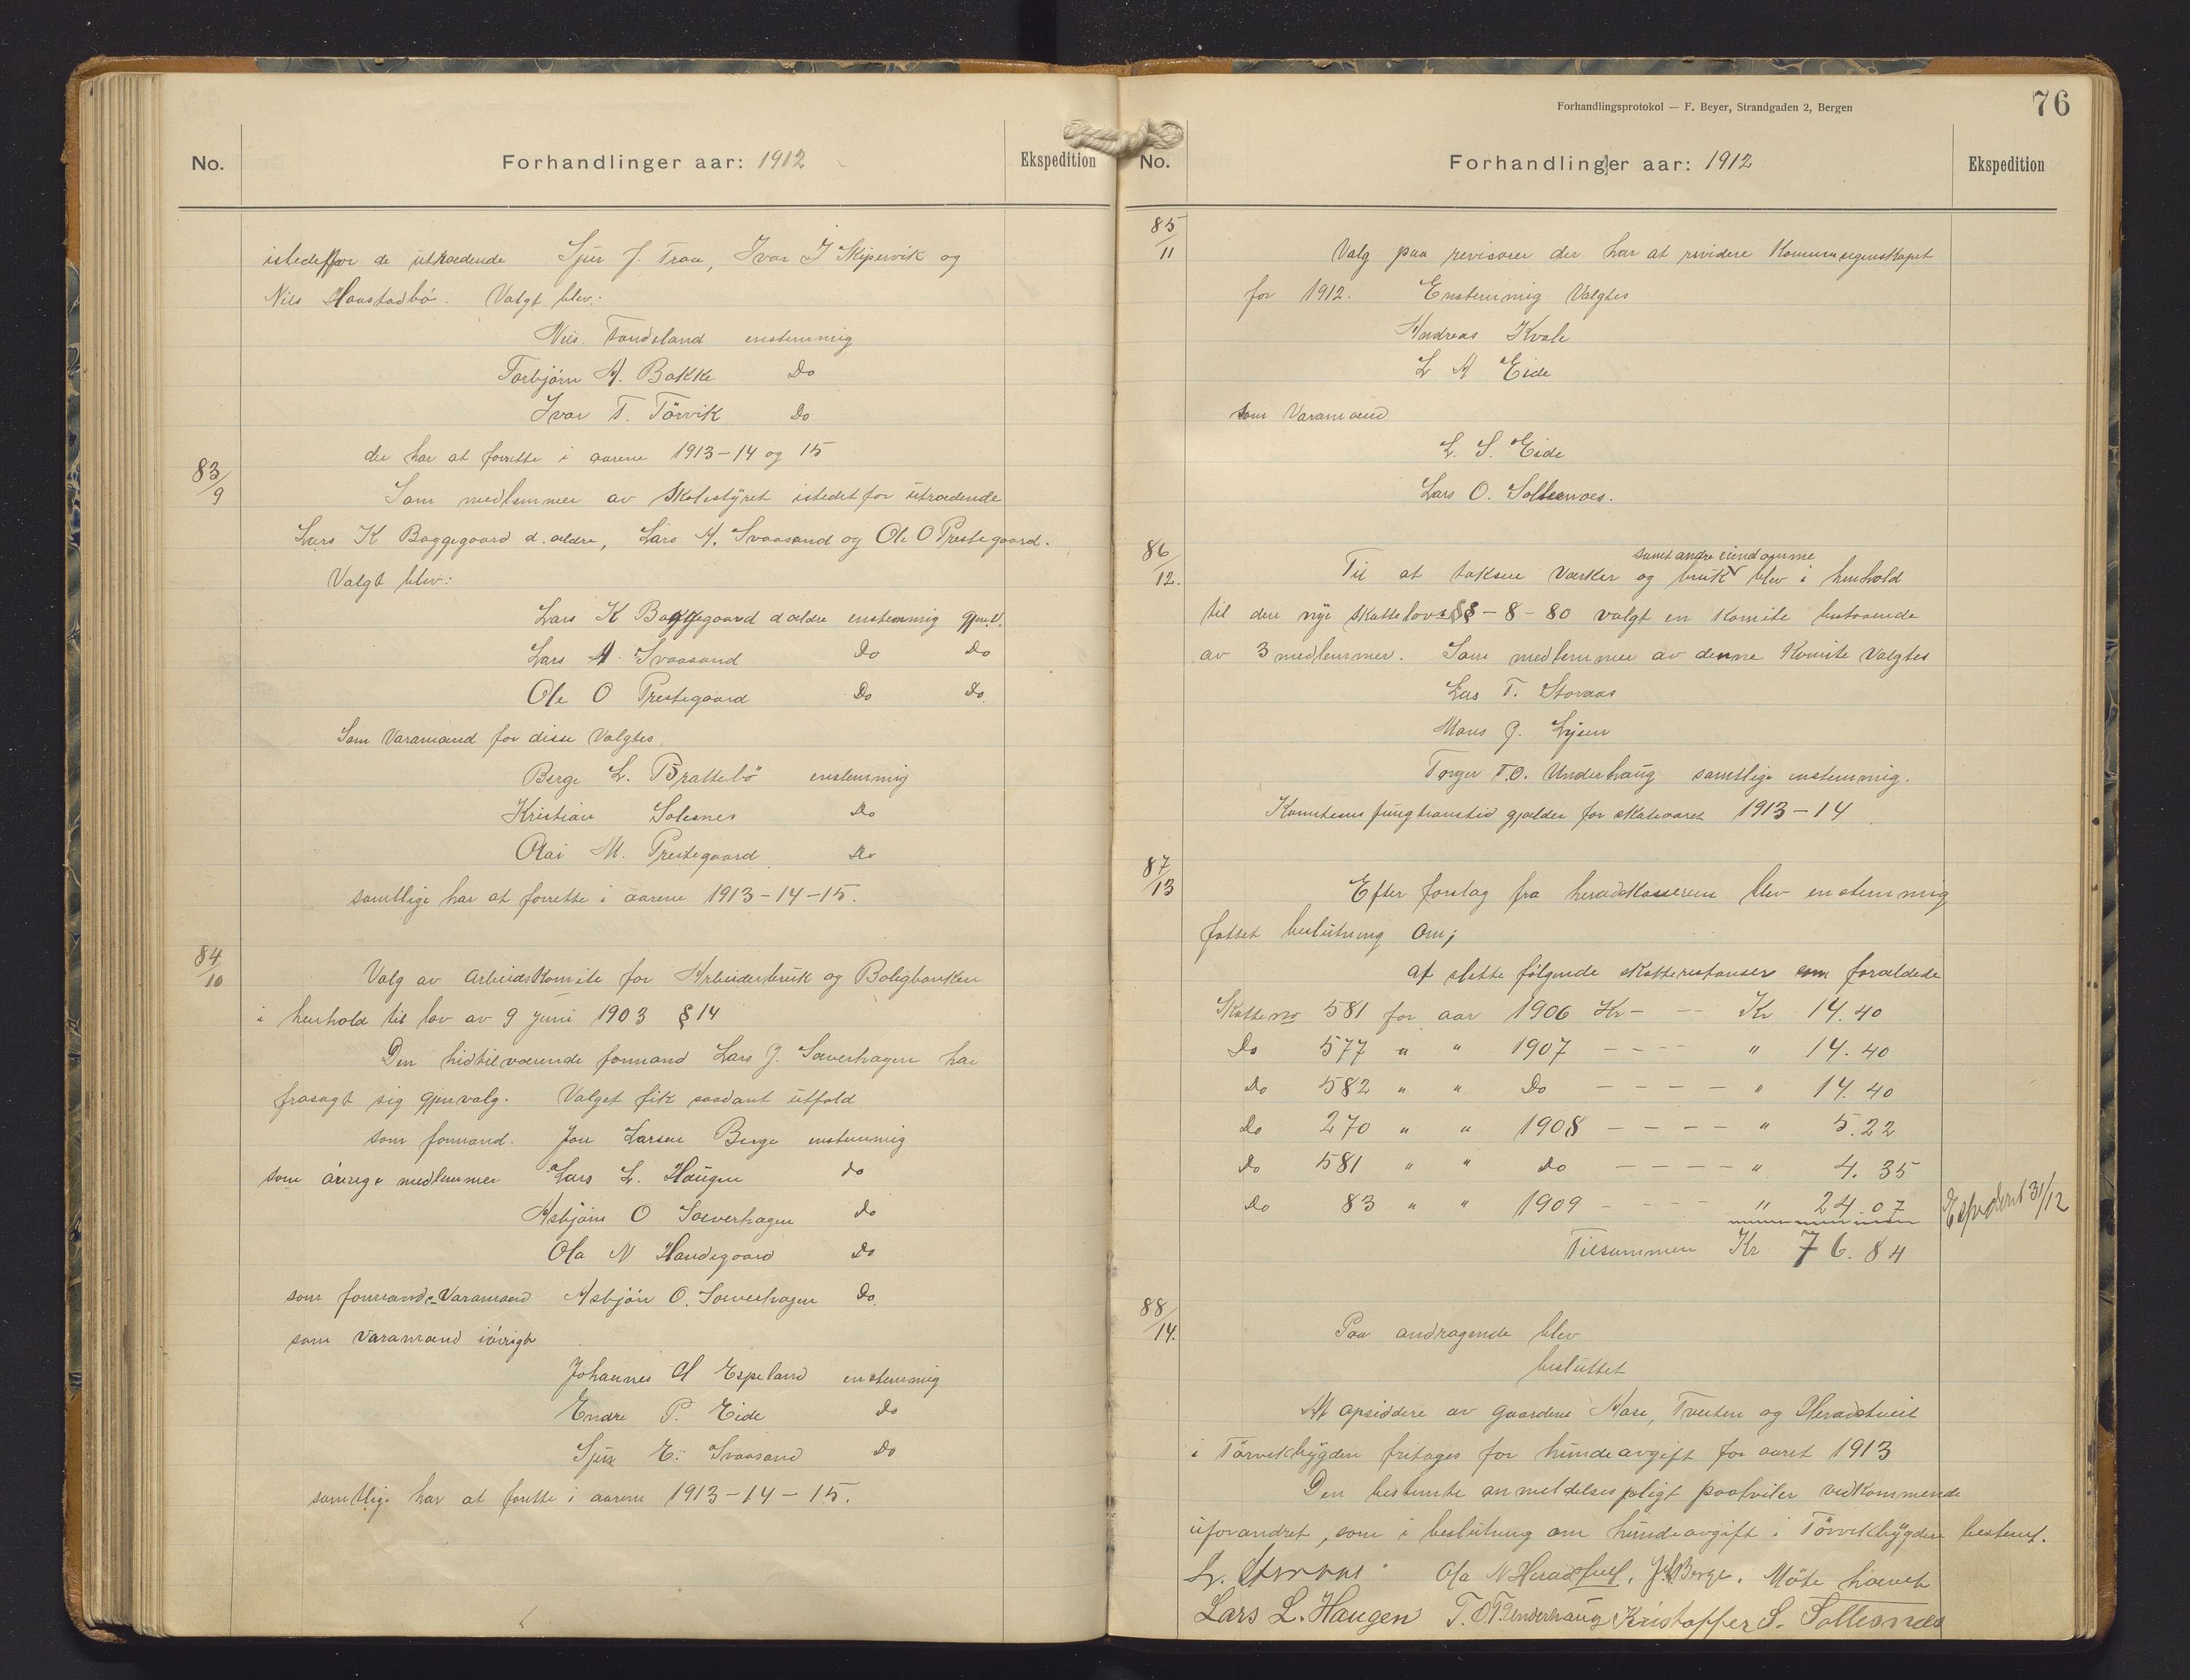 No.
Forhandlinger aar: 1912
Ekspedition
istedetfor de utrædende Sjur J. Traa, Ivar I Skipervik og
Nils Haustadbö. Valgt blev:
Nils Tandeland enstemmig
Torbjörn A. Bakke Do
Ivar T. Törvik Do
der har at forrette i aarene 1913-14 og 15
83/9
Som medlemmer av Skolestyret istedetfor utrædende
Lars K Baggegaard d. ældre, Lars A. Svaasand og Ole O Prestegaard.
Valgt blev:
Lars K Baggegaard d ældre enstemmig gjenv.
Lars A. Svaasand Do Do
Ole O Prestegaard Do Do.
Som Varamænd for disse Valgtes
Berge L. Brattebö enstemmig
Kristian Solesnes Do
Olai M. Prestegaard Do
samtlige har at forrette i aarene 1913-14-15.
84/10
Valg av arbeidskomite for Arbeiderbruk og Boligbanken
i henhold til lov av 9 juni 1903 § 14
Den hidtilværende formand Lars J. Sæverhagen har
frasagt sig gjenvalg. Valget fik saadant utfald
som formand. Jon Larsen Berge enstemmig
som övrige medlemmer Lars L. Haugen do
Asbjörn O Sæverhagen Do
Ola N Handegaard Do
som formands Varamand Asbjörn O. Sæverhagen Do.
som varamænd iövrigt
Johannes A Espeland enstemmig
Endre P. Eide Do
Sjur E. Svaasand Do
samtlige har at forette i aarene 1913-14-15.
Forhandlingsprotokol — F. Beyer, Strandgaden 2, Bergen
76
No.
Forhandlinger aar: 1912
Ekspedition
85/11
Valg paa revisorer der har at revidere Kommuneregnskapet
for 1912. Enstemmig Valgtes
Andreas Kvale
L A Eide
som Varamænd
L. S. Eide
Lars O. Solesnes.
86/12.
samt andre eiendomme
Til at taksere Værker og bruk blev i henhold
til den nye Skattelovs §§ - 8 - 80 valgt en Komite bestaaende
av 3 medlemmer. Som medlemmer av denne Komite Valgtes
Lars T. Storaas
Mons J. Lysen
Torger T.O. Underhaug samtlige enstemmig.
Komiteens fungtionstid gjælder for skateaaret 1913-14
87/13
Efter forslag fra heradskasseren blev enstemmig
fattet beslutning om;
at slette fölgende skatterestanser som forældede
Skatte no 581 for aar 1906 Kr - -- Kr 14.40
Do 577 " " 1907 - - - - " 14.40
Do 582 " " Do - - - - " 14.40
Do 270 " " 1908 - - - - " 5.22
Do 581 " " Do - - - - " 4.35
Do 83 " " 1909 - - - - " 24.07
Ekspedert 31/12
Tilsammen Kr 76.84
88/14.
Paa andragende blev
besluttet
At opsiddere av gaardene Aase, Tveiten og Heradstveit
i Törvikbygden fritages for hundeavgift for aaret 1913
Den bestemte anmeldelsespligt paahviler vedkommende
uforandret, som i beslutning om hundeavgift i Törvikbygden bestemt.
L. Storaas. Ola N Heradstveit. J.L. Berge. Möte hævet
Lars L. Haugen T. O. T. Underhaug Kristoffer S. Sollesnes